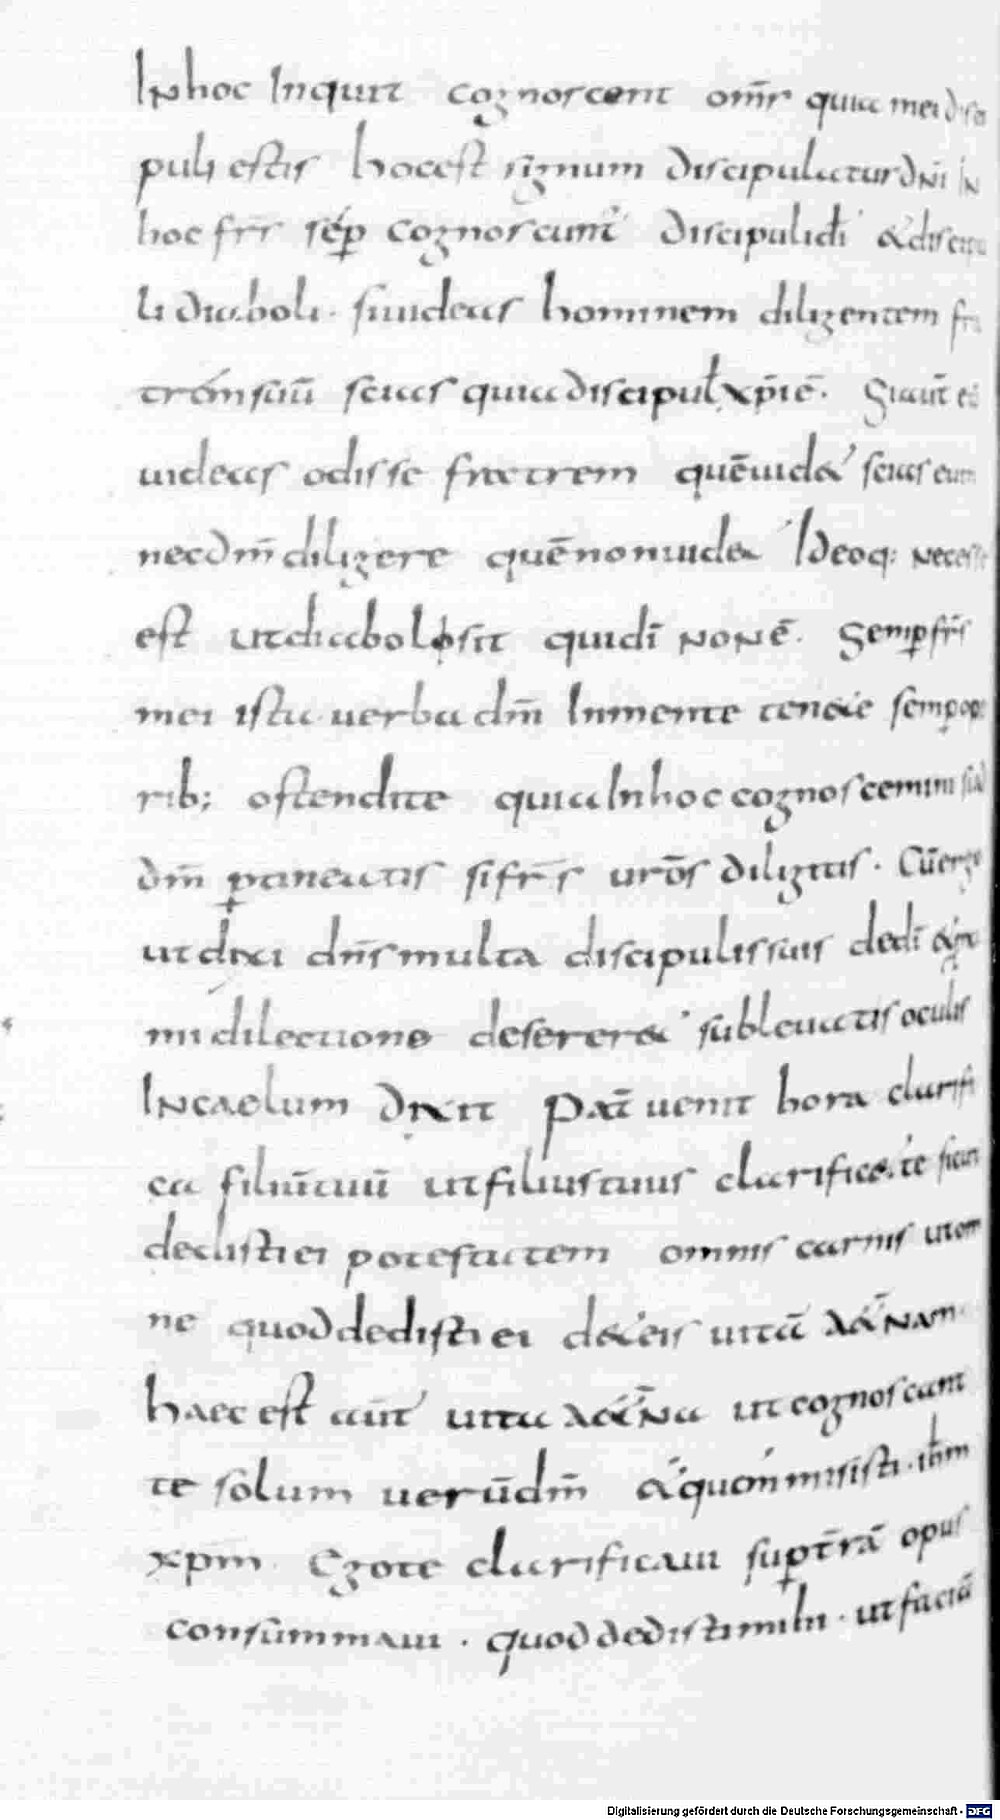 Inhoc Inquit cognoscent om̄s quia mei disci
puli estis hocest signum discipulatus dn̄i in
hoc fr̄s sēp cognoscunt̄ discipuli dī &discipu
li diaboli · siuideas hominem diligentem fra
trem suū scias quiadiscipul xp̄i ē · Siaūt eū
uideas odisse fratrem quēuid& scias eum
necdm̄ diligere quēnonuid& Ideoq: necesse
est utdiabol sit quidī nonē · Semp̄ fr̄s
mei ista uerba dn̄i Inmente ten&e semp̄ ope
rib; ostendite quiaInhoc cognoscemini si ad
dm̄ ptineatis sifr̄s ur̄os diligitis · Cūergo
utdixi dn̄s multa discipulissuis dedī &
mi dilectione deserer& subleuatis oculis
Incaelum dixit Pat̄ uenit hora clarifi
ca filiūtuū utfiliustuus clarific& te sicut
dedisti ei potestatem omnis carnis utom
ne quoddedisti ei d&eis uitā a&̄nam
haec est aūt uita a&̄na ut cognoscant
te solum uerūdm̄ &quem misisti · ihm
xpm · Egote clarificaui sup t̄rā opus
consummaui · quoddedistimihi · utfaciā
Digitalisierung gefördert durch die Deutsche Forschungsgemeinschaft - DFG